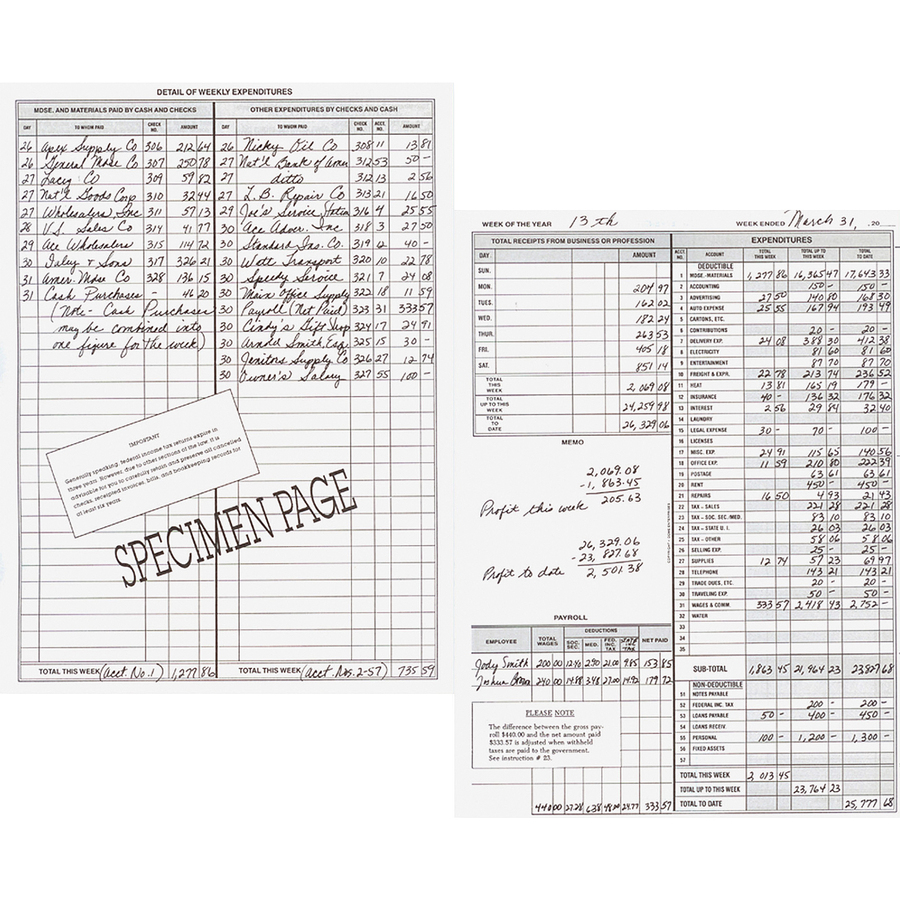 DETAIL OF WEEKLY EXPENDITURES
MDSE. AND MATERIALS PAID BY CASH AND CHECKS
OTHER EXPENDITURES BY CHECKS AND CASH
DAY TO WHOM PAID CHECK NO. AMOUNT
DAY TO WHOM PAID CHECK NO. ACC. NO. AMOUNT
26 Apex Supply Co 306 212 64
26 General Mdse Co 307 250 78
27 Lacey Co 309 59 82
27 Nat'l Goods Corp 310 32 44
27 Wholesalers, Inc 311 57 13
28 V.S. Sales Co 314 41 77
29 Ace Wholesalers 315 114 72
30 Juley & Sons 317 326 21
31 Amer. Mdse Co 328 136 15
31 Cash Purchases - 46 20
(Note - Cash Purchases
may be combined into
one figure for the week)
26 Nicky Oil Co 308 11 13 81
27 Nat'l Bank of Amer 312 53 50 -
27 ditto 312 13 2 56
27 L.B. Repair Co 313 21 16 50
29 Joe's Service Station 316 4 25 55
30 Ace Adver. Inc 318 3 27 50
30 Standard Ins. Co. 319 12 40 -
30 Watt Transport 320 10 22 78
30 Speedy Service 321 7 24 08
30 Main Office Supply 322 18 11 59
30 Payroll (Net Paid) 323 31 333 57
30 Cindy's Gift Shop 324 17 24 91
30 Arnold Smith Esq. 325 15 30 -
30 Janitors Supply Co 326 27 12 74
30 Owner's Salary 327 55 100 -
IMPORTANT
Generally speaking, federal income tax returns expire in
three years. However, due to other sections of the law, it is
advisable for you to carefully retain and preserve all cancelled
checks, receipted invoices, bills, and bookkeeping records for
at least six years.
SPECIMEN PAGE
TOTAL THIS WEEK (Acct. No. 1) 1,277 86
TOTAL THIS WEEK (Acct. Nos. 2-57) 735 59
WEEK OF THE YEAR 13th
WEEK ENDED March 31, , 20
TOTAL RECEIPTS FROM BUSINESS OR PROFESSION
DAY AMOUNT
SUN.
MON. 204 97
TUES. 162 02
WED. 182 24
THUR. 263 53
FRI. 405 18
SAT. 851 14
TOTAL THIS WEEK 2,069 08
TOTAL UP TO THIS WEEK 24,259 98
TOTAL TO DATE 26,329 06
MEMO
2,069.08
-1,863.45
Profit this week 205.63
26,329.06
-23,827.68
Profit to date 2,501.38
PAYROLL
EMPLOYEE TOTAL WAGES DEDUCTIONS SOC. SEC. MED. FED. INC. TAX STATE INC. TAX NET PAID
Jody Smith 200 00 12 40 2 90 21 00 9 85 153 85
Joshua 240 00 14 88 3 48 27 00 14 92 179 72
PLEASE NOTE
The difference between the gross pay-
roll $440.00 and the net amount paid
$333.57 is adjusted when withheld
taxes are paid to the government.
See instruction # 23.
440 00 27 28 6 38 48 00 24 77 333 57
EXPENDITURES
ACCT. NO. ACCOUNT TOTAL THIS WEEK TOTAL UP TO THIS WEEK TOTAL TO DATE
DEDUCTIBLE
1 MDSE.-MATERIALS 1,277 86 16,365 47 17,643 33
2 ACCOUNTING 150 - 150 -
3 ADVERTISING 27 50 140 80 168 30
4 AUTO EXPENSE 25 55 167 94 193 49
5 CARTONS, ETC.
6 CONTRIBUTIONS 20 - 20 -
7 DELIVERY EXP. 24 08 388 30 412 38
8 ELECTRICITY 81 60 81 60
9 ENTERTAINMENT 87 70 87 70
10 FREIGHT & EXPR. 22 78 213 74 236 52
11 HEAT 13 81 165 19 179 -
12 INSURANCE 40 - 136 32 176 32
13 INTEREST 2 56 29 84 32 40
14 LAUNDRY
15 LEGAL EXPENSE 30 - 70 - 100 -
16 LICENSES
17 MISC. EXP. 24 91 115 65 140 56
18 OFFICE EXP. 11 59 210 80 222 39
19 POSTAGE 63 61 63 61
20 RENT 450 - 450 -
21 REPAIRS 16 50 4 93 21 43
22 TAX - SALES 221 28 221 28
23 TAX - SOC. SEC./MED. 83 10 83 10
24 TAX - STATE U. I. 26 03 26 03
25 TAX - OTHER 58 06 58 06
26 SELLING EXP. 25 - 25 -
27 SUPPLIES 12 74 57 23 69 97
28 TELEPHONE 143 21 143 21
29 TRADE DUES, ETC. 20 - 20 -
30 TRAVELING EXP. 50 - 50 -
31 WAGES & COMM. 333 57 2,418 43 2,752 -
32 WATER
33
34
35
SUB-TOTAL 1,863 45 21,964 23 23827 68
NON-DEDUCTIBLE
51 NOTES PAYABLE
52 FEDERAL INC. TAX 200 - 200 -
53 LOANS PAYABLE 50 - 400 - 450 -
54 LOANS RECEIV.
55 PERSONAL 100 - 1,200 - 1,300 -
56 FIXED ASSETS
57
TOTAL THIS WEEK 2,013 45
TOTAL UP TO THIS WEEK 23,764 23
TOTAL TO DATE 25,777 68